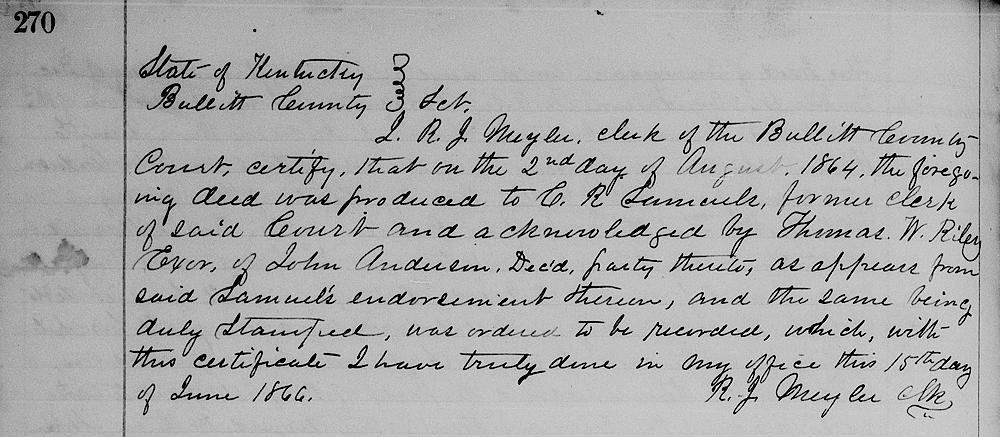 270
State of Kentucky
Bullitt County Sct.
I. R. J. Meyler, clerk of the Bullitt County
Court, certify, that on the 2nd day of August, 1864, the forego-
ing deed was produced to C. R. Samuels, former clerk
of said Court and acknowledged by Thomas. W. Riley
Exor, of John Anderson, Dec'd, party thereto, as appears from
said Samuels endorsement thereon, and the same being
duly stamped, was ordered to be recorded, which, with
this certificate I have truly done in my office this 15th day
of June 1866.
R. J. Meyler Clk